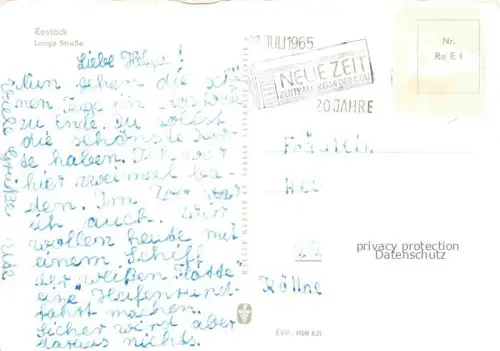 Rostock
Lange Straße
Liebe Helga!
Nun gehen die schö-
nen Tage in
zu Ende. Du sollst
die schönste Kar-
te haben. Ich war
hier zweimal ba-
den. Im Zoo war
ich auch. Wir
wollen heute mit
einem Schiff
der "weißen Flotte"
eine Hafenrund-
fahrt machen.
Sicher wird aber
daraus nichts.
Viele Grüße
JULI 1965
NEUE ZEIT
ZENTRALORGAN DER CDU
20 JAHRE
Nr.
Ro E 1
Fräulein
privacy protection
Datenschutz
EVP: MDN 0,20